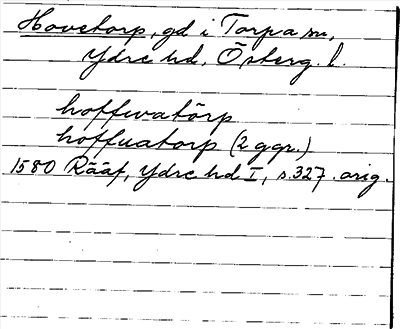 Hovetorp, gd i Torpa sn,
Ydre hd, Österg. l.
hoffwatörp
hoffuatorp (2 ggr.)
1580 Rääf, Ydre hd I, s. 327. orig.